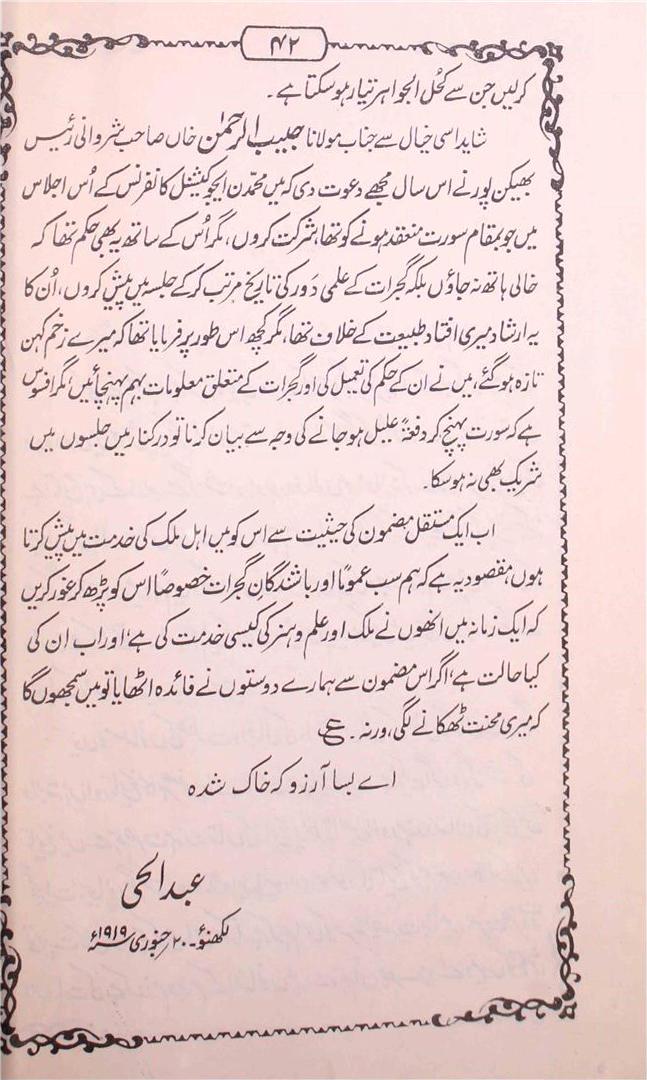 ۴۲
کرلیں جن سے کُحل الجواہر تیار ہو سکتا ہے۔
شاید اسی خیال سے جناب مولانا حبیب الرحمٰن خاں صاحب شروانی رئیس
بھیکن پور نے اس سال مجھے دعوت دی کہ میں محمڈن ایجوکیشنل کانفرنس کے اُس اجلاس
میں جو بمقام سورت منعقد ہونے کو تھا، شرکت کروں، مگر اُس کے ساتھ یہ بھی حکم تھا کہ
خالی ہاتھ نہ جاؤں بلکہ گجرات کے علمی دَور کی تاریخ مرتب کرکے جلسہ میں پیش کروں، اُن کا
یہ ارشاد میری افتاد طبیعت کے خلاف تھا، مگر کچھ اس طور پر فرمایا تھا کہ میرے زخم کہن
تازہ ہو گئے، میں نے ان کے حکم کی تعمیل کی اور گجرات کے متعلق معلومات بہم پہنچائیں، مگر افسوس
ہے کہ سورت پہنچ کر دفعۃً علیل ہو جانے کی وجہ سے بیان کرنا تو درکنار میں جلسوں میں
شریک بھی نہ ہو سکا۔
اب ایک مستقل مضمون کی حیثیت سے اس کو میں اہل ملک کی خدمت میں پیش کرتا
ہوں مقصود یہ ہے کہ ہم سب عموماً اور باشندگانِ گجرات خصوصاً اس کو پڑھ کر غور کریں
کہ ایک زمانہ میں انھوں نے ملک اور علم و ہنر کی کیسی خدمت کی ہے، اور اب ان کی
کیا حالت ہے، اگر اس مضمون سے ہمارے دوستوں نے فائدہ اٹھایا تو میں سمجھوں گا
کہ میری محنت ٹھکانے لگی، ورنہ۔ ع
اے بسا آرزو کہ خاک شدہ
عبدالحی
لکھنؤ۔ ۲۰؍ جنوری ۱۹۱۹ء